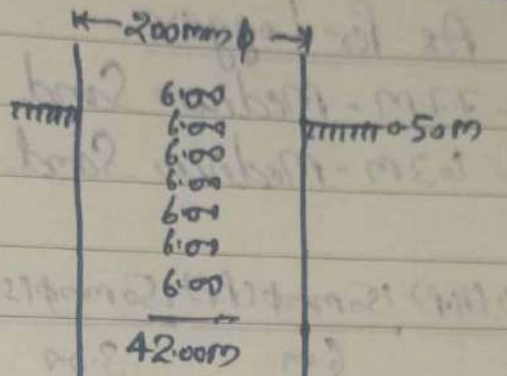 200mm φ
6.00
6.00 0.50m
6.00
6.00
6.00
6.00
6.00
42.00m